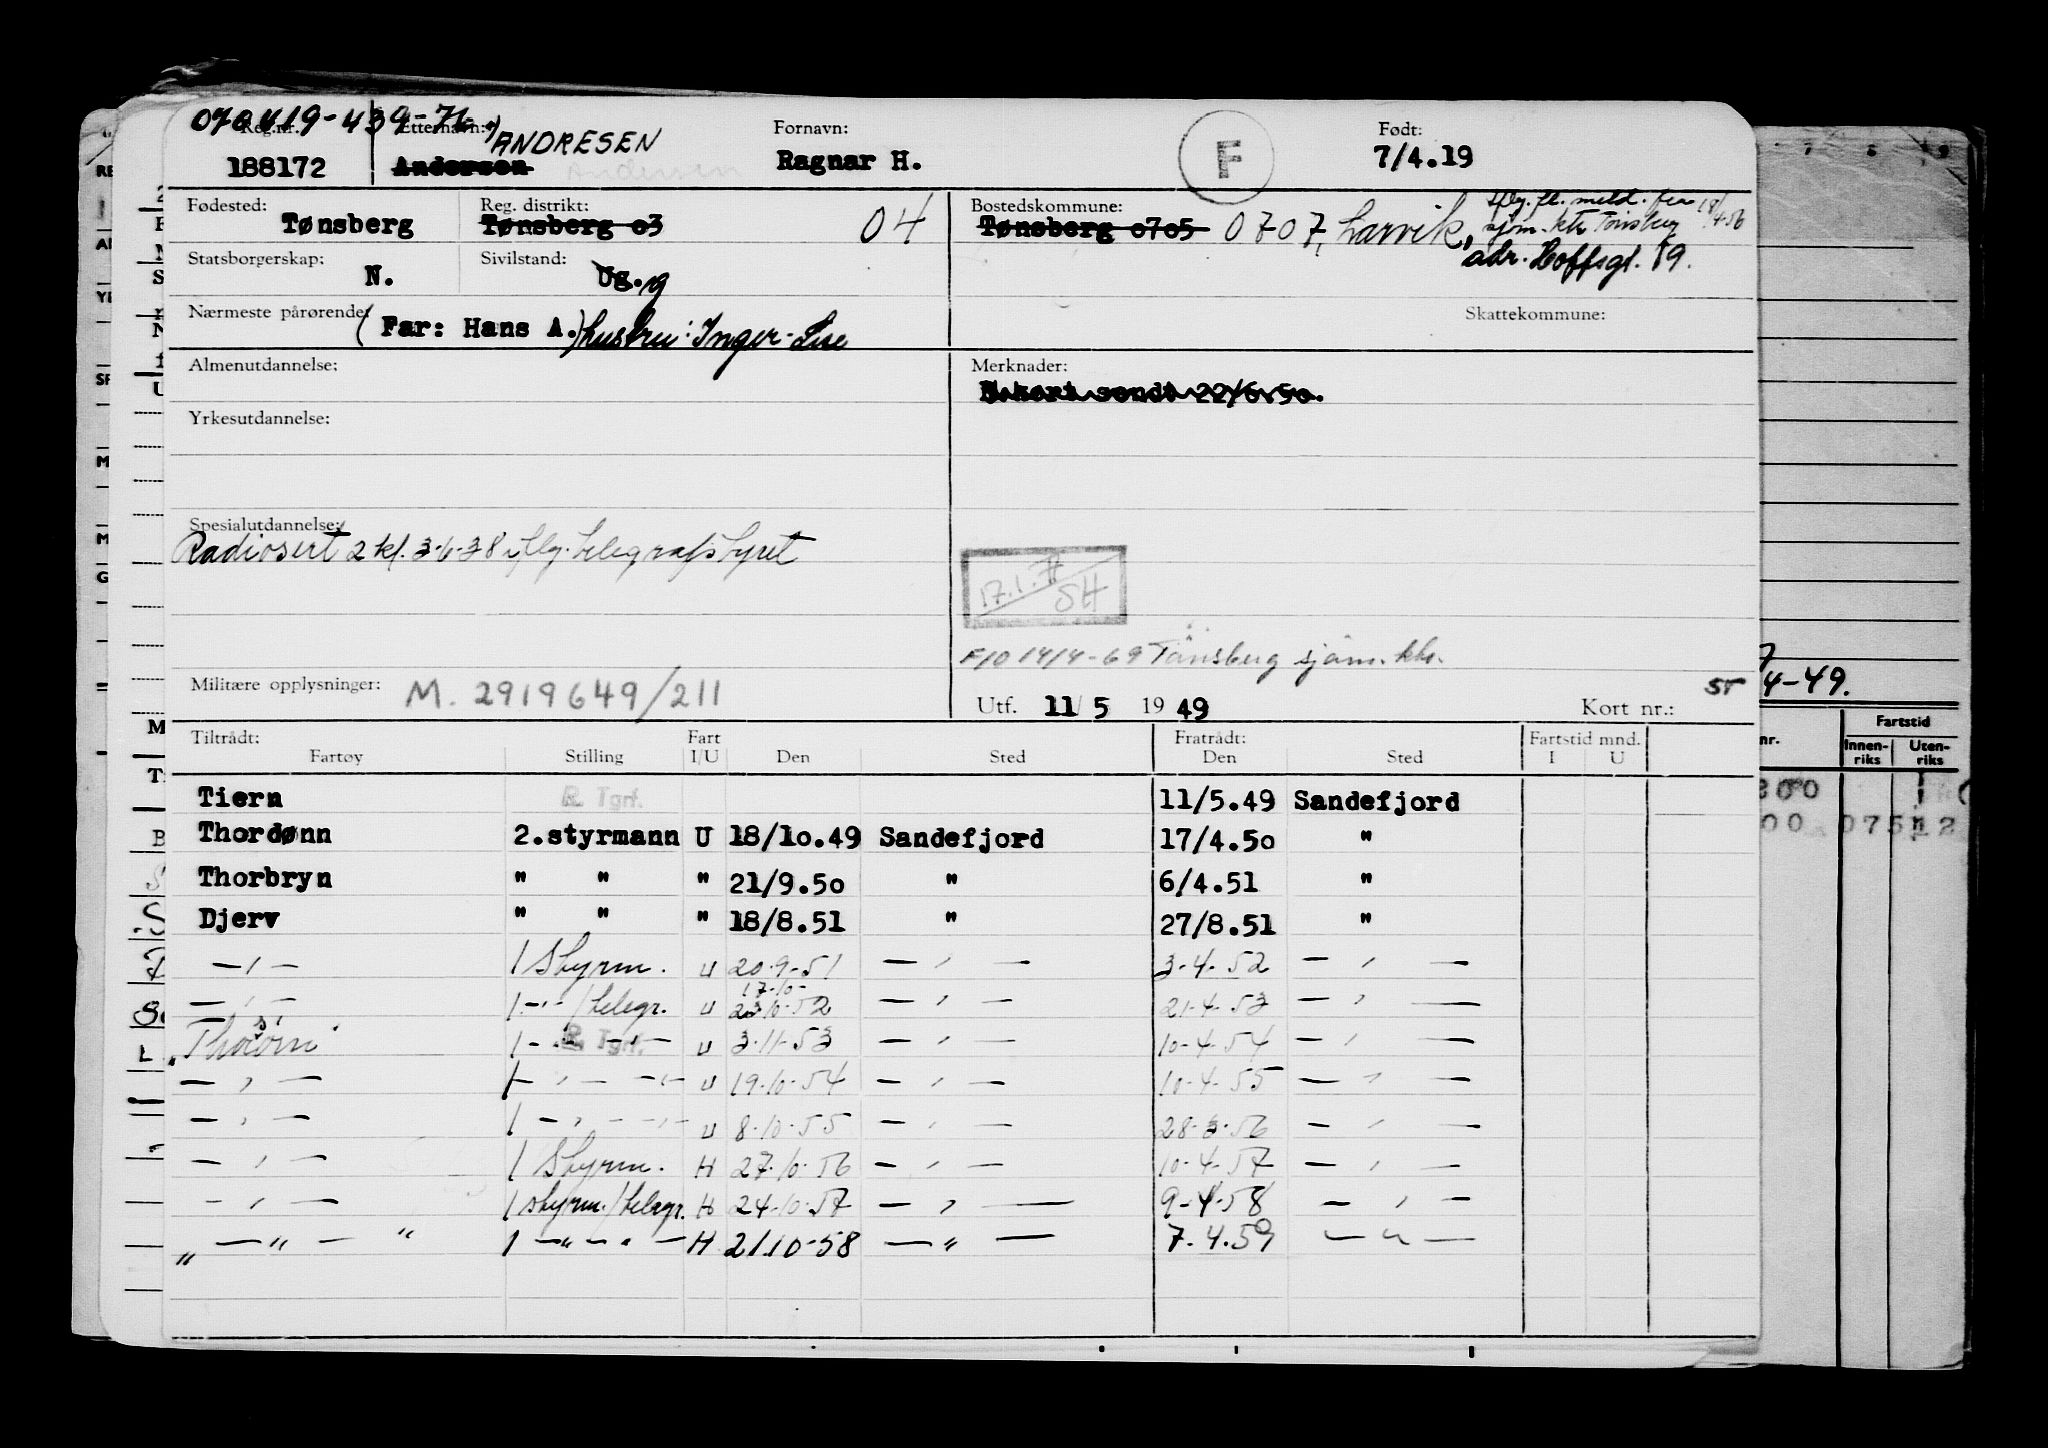 070419-439-76
Reg.nr. Etternavn: ANDRESEN Fornavn: F Født:
188172 Andersen Andersen Ragnar H. 7/4.19
Fødested: Reg. distrikt: Bostedskommune: meld. fra 18/4-56
Tønsberg Tønsberg o3 04 Tønsberg o7o5 0707, Larvik, sjøm. ktr Tønsberg
Statsborgerskap: Sivilstand: adr. Hoffsgt. 19.
N. Ug. g
Nærmeste pårørende: Skattekommune:
(Far: Hans A.) hustru: Inger-Lise
Almenutdannelse: Merknader:
H.kort sendt 22/6.5o.
Yrkesutdannelse:
Spesialutdannelse:
Radiosert 2 kl. 3-6-38 telegrafstyret
17.1. SH
F/O 14/4-69 Tønsberg sjøm. ktr.
Militære opplysninger: M. 2919649/211 Utf. 11/5 1949 Kort nr.: ST
Tiltrådt: Fart Fratrådt: Fartstid mnd.
Fartøy Stilling I/U Den Sted Den Sted I U
Tiern R. Tgrf. 11/5.49 Sandefjord
Thordønn 2.styrmann U 18/1o.49 Sandefjord 17/4.5o "
Thorbryn " " " 21/9.5o " 6/4.51 "
Djerv " " " 18/8.51 " 27/8.51 "
— " — 1 Styrm. U 20-9-51 — " — 3-4-52 — " —
17-10-
— " — 1 — " — /telegr. U 10-52 — " — 21-4-53 — " —
1 — " — R. Tgrf. U 3-11-53 — " — 10-4-54 — " —
— " — 1 — " — " — U 19-10-54 — " — 10-4-55 — " —
— " — 1 — " — " — U 8-10-55 — " — 28-3-56 — " —
— " — 1 Styrm. H 27-10-56 — " — 10-4-57 — " —
— " — 1 styrm./telegr. H 24-10-57 — " — 9-4-58 — " —
" — " — " 1 — " — " — H 21.10-58 — " — 7.4.59 — " —
4-49.
nr. Fartstid
Innenriks Utenriks
300
00 075